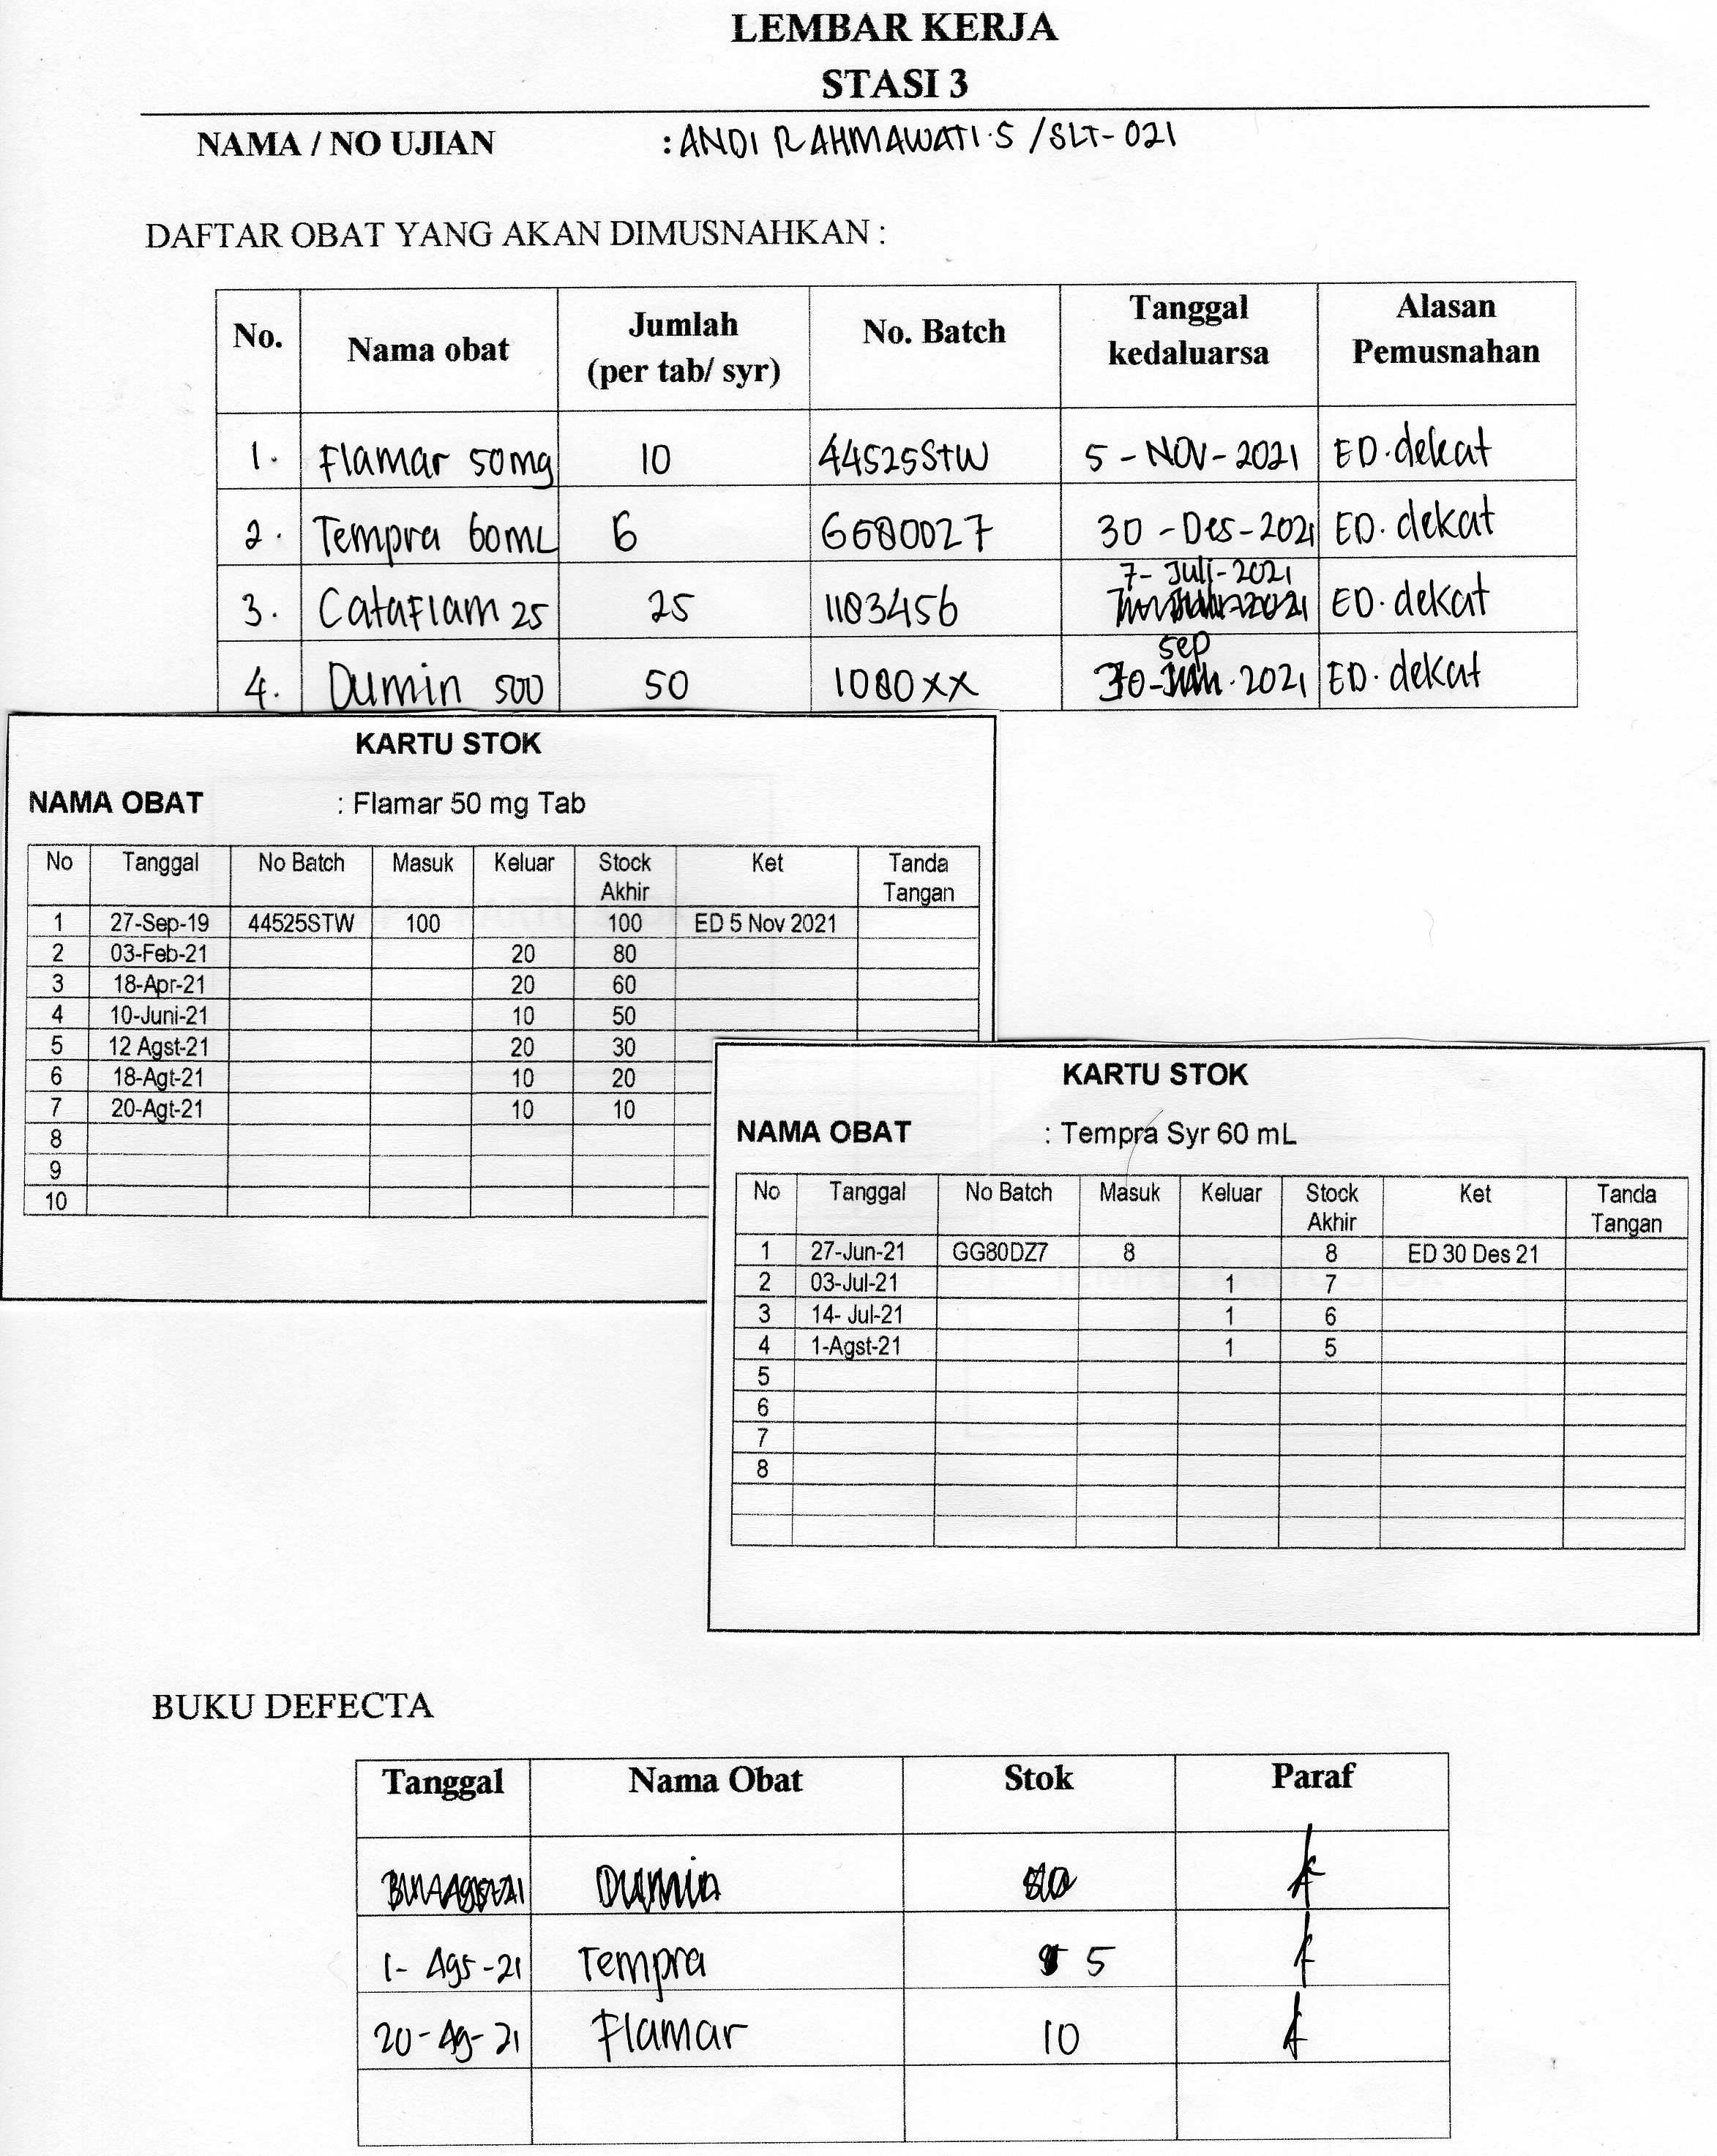 LEMBAR KERJA
STASI 3
NAMA / NO UJIAN : ANDI RAHMAWATI.S /SLT-021
DAFTAR OBAT YANG AKAN DIMUSNAHKAN :
No. Nama obat Jumlah (per tab/ syr) No. Batch Tanggal kedaluarsa Alasan Pemusnahan
1. Flamar 50mg 10 44525STW 5 - NOV - 2021 ED. dekat
2. Tempra 60mL 6 6680027 30 - Des - 2021 ED. dekat
3. Cataflam 25 25 1103456 7 - Juli - 2021 ED. dekat
4. Dumin 500 50 1080xx 30 - sep . 2021 ED. dekat
KARTU STOK
NAMA OBAT : Flamar 50 mg Tab
No Tanggal No Batch Masuk Keluar Stock Akhir Ket Tanda Tangan
1 27-Sep-19 44525STW 100 100 ED 5 Nov 2021
2 03-Feb-21 20 80
3 18-Apr-21 20 60
4 10-Juni-21 10 50
5 12 Agst-21 20 30
6 18-Agt-21 10 20
7 20-Agt-21 10 10
8
9
10
KARTU STOK
NAMA OBAT : Tempra Syr 60 mL
No Tanggal No Batch Masuk Keluar Stock Akhir Ket Tanda Tangan
1 27-Jun-21 GG80DZ7 8 8 ED 30 Des 21
2 03-Jul-21 1 7
3 14- Jul-21 1 6
4 1-Agst-21 1 5
5
6
7
8
BUKU DEFECTA
Tanggal Nama Obat Stok Paraf
Dumin
1- Ags -21 Tempra 5
20-Ag-21 Flamar 10